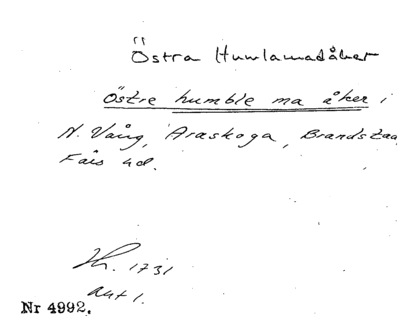 Östra Humlamadåker
Östre humble ma åker i
N. Vång, Araskoga, Brandstad
Fäs hd.
Lh. 1731
akt 1.
Nr 4992.